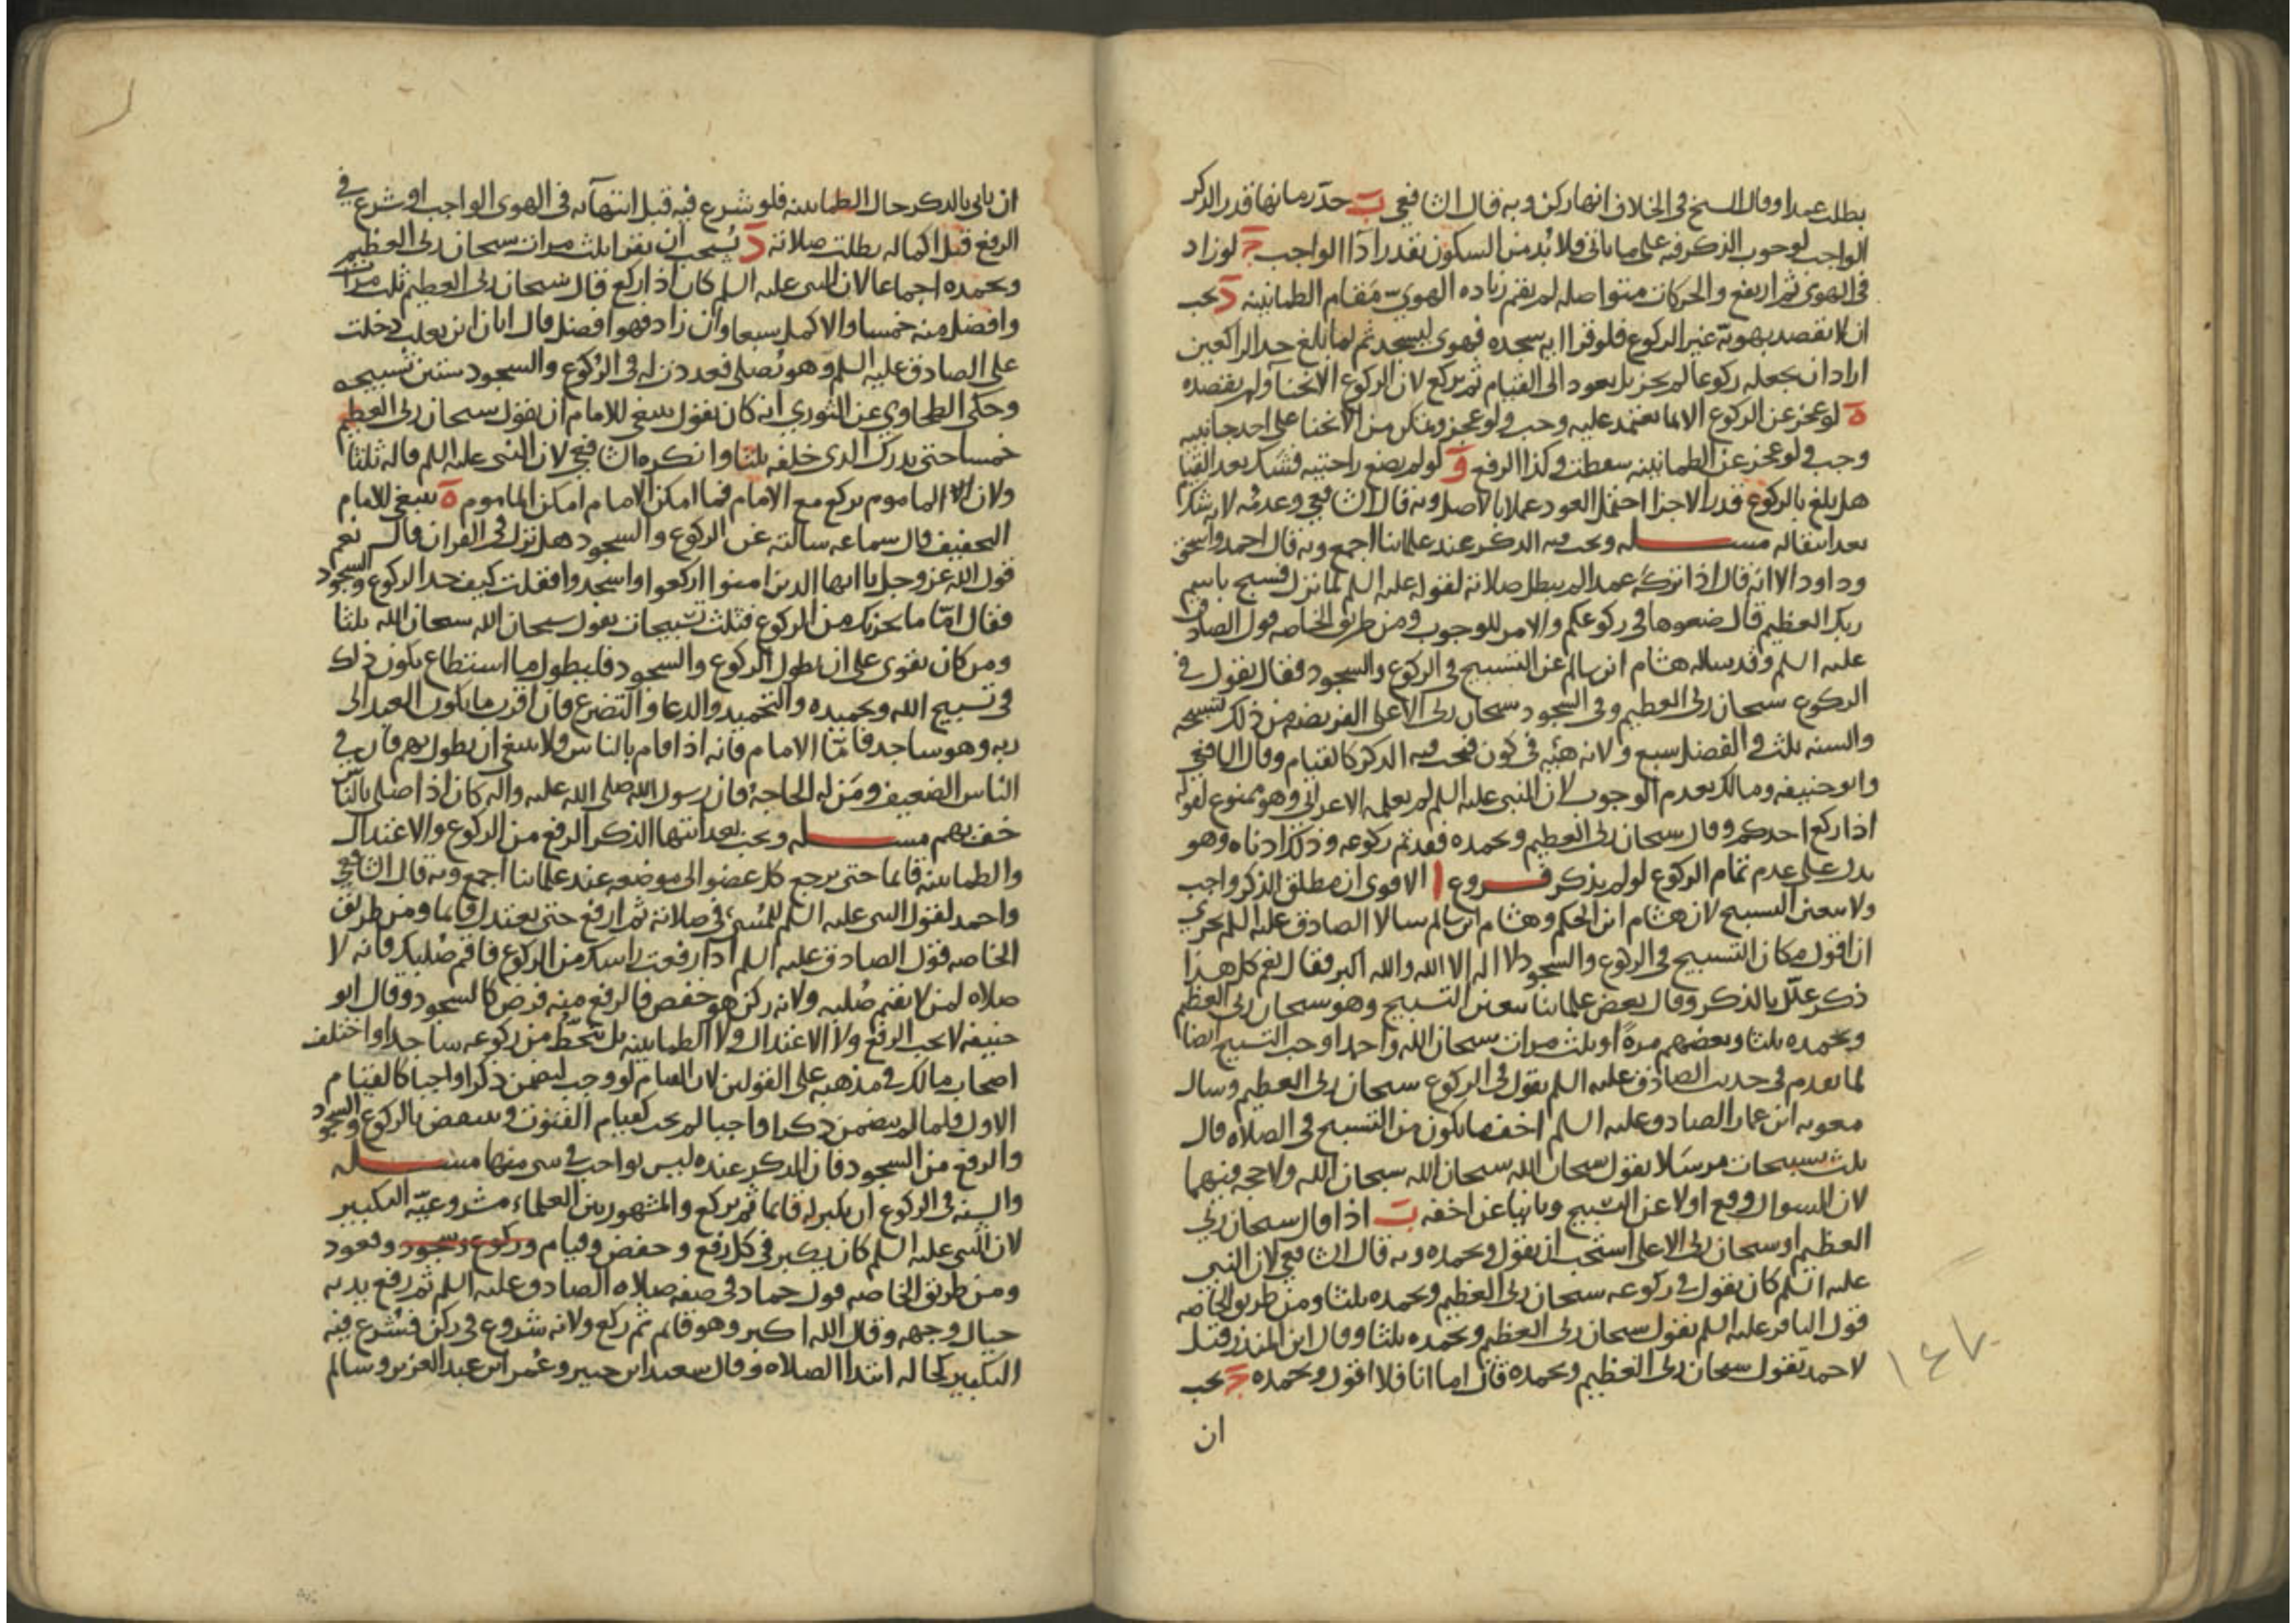 بطلت عمدا وقال الشيخ في الخلاف انها ركن وبه قال الشافعي ب حد زمانها قدر الذكر
الواجب لوجوب الذكر فيه على ما ياتي فلا بد من السكون بقدر اداء الواجب ج لو زاد
في الهوي ثم ارتفع والحركات متواصله لم يقم زياده الهوي مقام الطمانينه د يجب
ان لا يقصد بهويه غير الركوع فلو قرا ايه سجده فهوى ليسجد ثم لما بلغ حد الراكعين
اراد ان يجعله ركوعا لم يجز بل يعود الى القيام ثم يركع لان الركوع الانحنا ولم يقصده
ه لو عجز عن الركوع الا بما يعتمد عليه وجب ولو عجز وتمكن من الانحنا على احد جانبيه
وجب ولو عجز عن الطمانينه سقطت وكذا الرفع و لو لم يضع راحتيه فشك بعد القيا
هل بلغ بالركوع قدر الاجزا احتمل العود عملا بالاصل وبه قال الشافعي وعدمه لانه شك
بعد انتقاله مسله ويجب فيه الذكر عند علمائنا اجمع وبه قال احمد واسحق
وداود الا انه قال اذا تركه عمدا لم يبطل صلاته لقوله عليه السلم لما نزل فسبح باسم
ربك العظيم قال ضعوها في ركوعكم والامر للوجوب ومن طريق الخاصه قول الصادق
عليه السلم وقد ساله هشام ابن سالم عن التسبيح في الركوع والسجود فقال تقول في
الركوع سبحان ربي العظيم وفي السجود سبحان ربي الاعلى الفريضه من ذلك تسبيحه
والسنه ثلث والفضل سبع ولانه هيئه في كون فيجب فيه الذكر كالقيام وقال الشافعي
وابو حنيفه ومالك بعدم الوجوب لان النبي عليه السلم لم يعلمه الاعرابي وهو ممنوع لقوله
اذا ركع احدكم وقال سبحان ربي العظيم وبحمده فقد تم ركوعه وذلك ادناه وهو
يدل على عدم تمام الركوع لو لم يذكر فروع ا الاقوى ان مطلق الذكر واجب
ولا يتعين التسبيح لان هشام ابن الحكم وهشام ابن سالم سالا الصادق عليه السلم يجزي
ان اقول مكان التسبيح في الركوع والسجود لا اله الا الله والله اكبر فقال نعم كل هذا
ذكر علل بالذكر وقال بعض علمائنا يتعين التسبيح وهو سبحان ربي العظيم
وبحمده ثلثا وبعضهم مرة او ثلث مرات سبحان الله واحدا وجب التسبيح ايضا
لما تقدم في حديث الصادق عليه السلم يقول في الركوع سبحان ربي العظيم وسال
معويه ابن عمار الصادق عليه السلم اخف ما يكون من التسبيح في الصلاه قال
ثلث تسبيحات مترسلا تقول سبحان الله سبحان الله سبحان الله ولا حجه فيهما
لان السوال وقع اولا عن التسبيح وثانيا عن اخفه ب اذا قال سبحان ربي
العظيم او سبحان ربي الاعلى استحب ان يقول وبحمده وبه قال الشافعي لان النبي
عليه السلم كان يقول في ركوعه سبحان ربي العظيم وبحمده ثلثا ومن طريق الخاصه
قول الباقر عليه السلم تقول سبحان ربي العظيم وبحمده ثلثا وقال ابن المنذر وقيل
لاحمد تقول سبحان ربي العظيم وبحمده قال اما انا فلا اقول وبحمده ج يجب
ان
ان ياتي بالذكر حال الطمانينه فلو شرع فيه قبل انتهائه في الهوى الواجب او شرع في
الرفع قبل اكماله بطلت صلاته د يستحب ان يقرا ثلث مرات سبحان ربي العظيم
وبحمده اجماعا لان النبي عليه السلم كان اذا ركع قال سبحان ربي العظيم ثلث مرات
وافضل منه خمسا والاكمل سبعا وان زاد فهو افضل قال ابان ابن تغلب دخلت
على الصادق عليه السلم وهو يصلي فعددت له في الركوع والسجود ستين تسبيحه
وحكى الطحاوي عن الثوري انه كان يقول ينبغي للامام ان يقول سبحان ربي العظيم
خمسا حتى يدرك الذي خلفه ثلثا وانكره الشافعي لان النبي عليه السلم قاله ثلثا
ولان الماموم يركع مع الامام فما امكن الامام امكن الماموم ه ينبغي للامام
التخفيف قال سماعه سالته عن الركوع والسجود هل نزل في القران فقال نعم
قول الله عز وجل يا ايها الذين امنوا اركعوا واسجدوا فقلت كيف حد الركوع والسجود
فقال اما ما يجزيك من الركوع فثلث تسبيحات تقول سبحان الله سبحان الله ثلثا
ومن كان يقوى على ان يطول الركوع والسجود فليطول ما استطاع يكون ذلك
في تسبيح الله وتحميده والتحميد والدعا والتضرع فان اقرب ما يكون العبد الى
ربه وهو ساجد فاما الامام فانه اذا قام بالناس فلا ينبغي ان يطول بهم فان في
الناس الضعيف ومن له الحاجه فان رسول الله صلى الله عليه واله كان اذا صلى بالناس
خف بهم مسله ويجب بعد انتها الذكر الرفع من الركوع والاعتدال
والطمانينه قائما حتى يرجع كل عضو الى موضعه عند علمائنا اجمع وبه قال الشافعي
واحمد لقول النبي عليه السلم للمسيء في صلاته ثم ارفع حتى يعتدل قائما ومن طريق
الخاصه قول الصادق عليه السلم اذا رفعت راسك من الركوع فاقم صلبك فانه لا
صلاه لمن لا يقيم صلبه ولانه ركن هو خفض فالرفع منه فرض كالسجود وقال ابو
حنيفه لا يجب الرفع ولا الاعتدال ولا الطمانينه بل ينحط من ركوعه ساجدا واختلف
اصحاب مالك في مذهبه على القولين لان القيام لو وجب لتضمن ذكرا واجبا كالقيام
الاول فلما لم يتضمن ذكرا واجبا لم يجب كقيام القنوت وينتقض بالركوع والسجود
والرفع من السجود فان الذكر عنده ليس بواجب في شي منها مسله
والسنه في الركوع ان يكبر له قائما ثم يركع والمشهور بين العلماء مشروعيه التكبير
لان النبي عليه السلم كان يكبر في كل رفع وخفض وقيام وركوع وسجود وقعود
ومن طريق الخاصه قول حماد في صفه صلاه الصادق عليه السلم ثم رفع يديه
حيال وجهه وقال الله اكبر وهو قائم ثم ركع ولانه شروع في ركن فشرع فيه
التكبير كحاله ابتدا الصلاه وقال سعيد ابن جبير وعمر ابن عبد العزيز وسالم